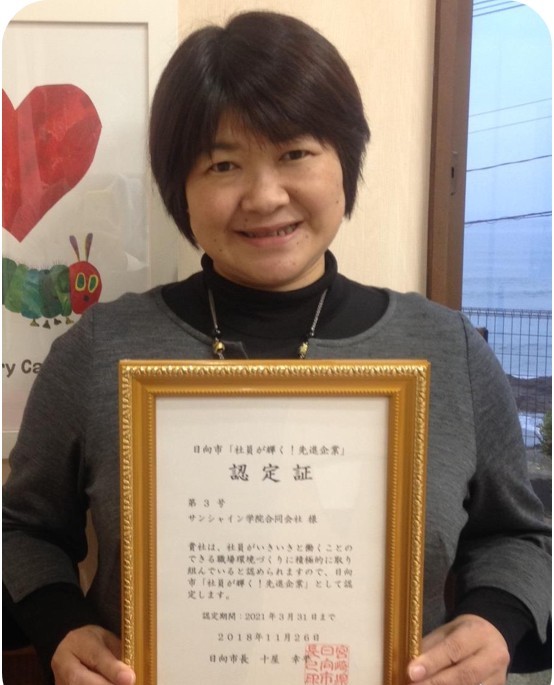 ry Ca
日向市「社員が輝く!先進企業」
認定証
第 3 号
サンシャイン学院合同会社 様
貴社は、社員がいきいきと働くことの
できる職場環境づくりに積極的に取り
組んでいると認められますので、日向
市「社員が輝く!先進企業」として認
定します。
認定期間:2021年3月31日まで
2018年11月26日
日向市長 十屋 幸平